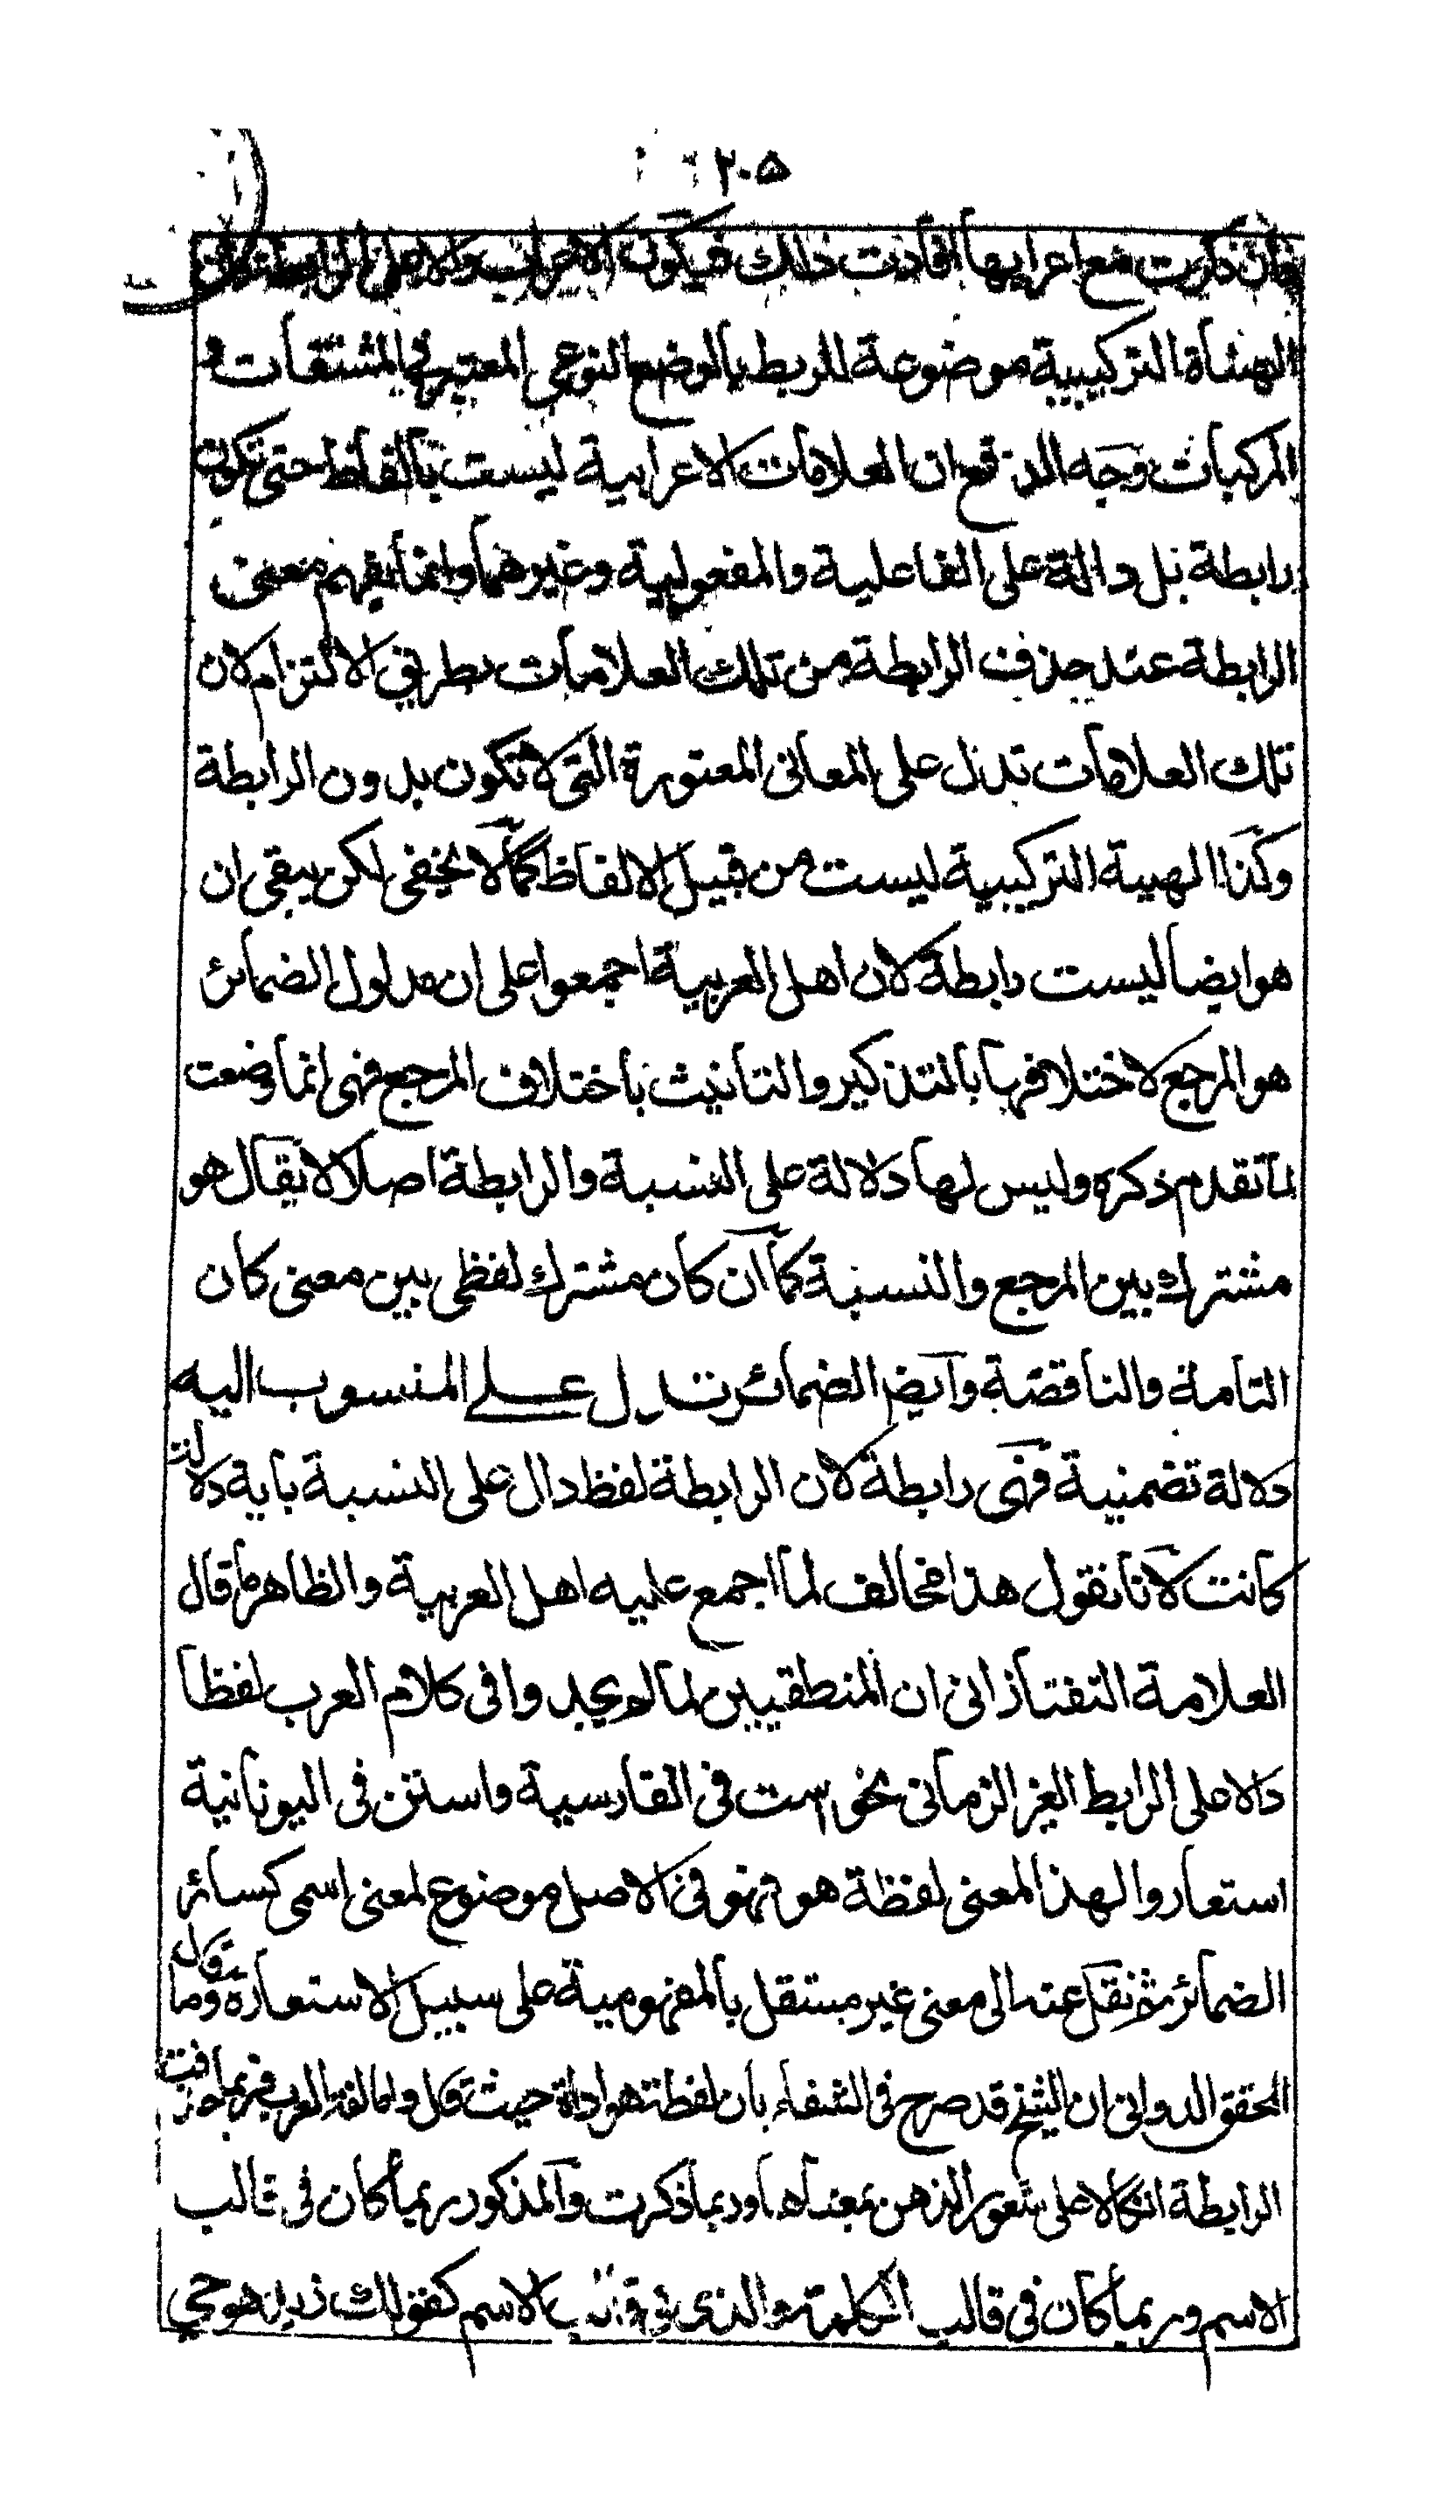 ٢٠٥
فان ذكرت مع اعرابها افادت ذلك فيكون الاعراب والا
الهيئاة التركيبية موضوعة للربط بالوضع النوعى المعتبر فى المشتقات و
المركبات وجه الدفع ان العلامات الاعرابية ليست بالفاظ حتى تكون
رابطة بل دالة على الفاعلية والمفعولية وغيرهما وانما يفهم معنى
الرابطة عند حذف الرابطة من تلك العلامات بطريق الالتزام لان
تلك العلامات تدل على المعانى المعتورة التى لا تكون بدون الرابطة
وكذا الهيئة التركيبية ليست من قبيل الالفاظ كما لا يخفى لكن يبقى ان
هو ايضا ليست رابطة لان اهل العربية اجمعوا على ان مدلول الضمائر
هو المرجع لاختلافها بالتذكير والتانيث باختلاف المرجع فهى انما وضعت
لما تقدم ذكره وليس لها دلالة على النسبة والرابطة اصلا لا يقال هو
مشترك بين المرجع والنسبة كما ان كان مشترك لفظى بين معنى كان
التامة والناقصة وايضا الضمائر تدل على المنسوب اليه
دلالة تضمنية فهى رابطة لان الرابطة لفظ دال على النسبة باية دلالة
كانت لانا نقول هذا مخالف لما اجمع عليه اهل العربية والظاهر ما قال
العلامة التفتازانى ان المنطقيين لما لم يجدوا فى كلام العرب لفظا
دالا على الرابط الغير الزمانى نحو است فى الفارسية واستن فى اليونانية
استعاروا لهذا المعنى لفظة هو فهو فى الاصل موضوع لمعنى اسمى كسائر
الضمائر ثم نقل عنه الى معنى غير مستقل بالمفهومية على سبيل الاستعارة وما نقل
المحقق الدوانى ان الشيخ قد صرح فى الشفاء بان لفظة هو اداة حيث قال واما لغة العرب فربما حذفت
الرابطة اتكالا على شعور الذهن بمعناها وربما ذكرت والمذكور ربما كان فى قالب
الاسم وربما كان فى قالب الكلمة والذى فى قالب الاسم كقولك زيد هو حى